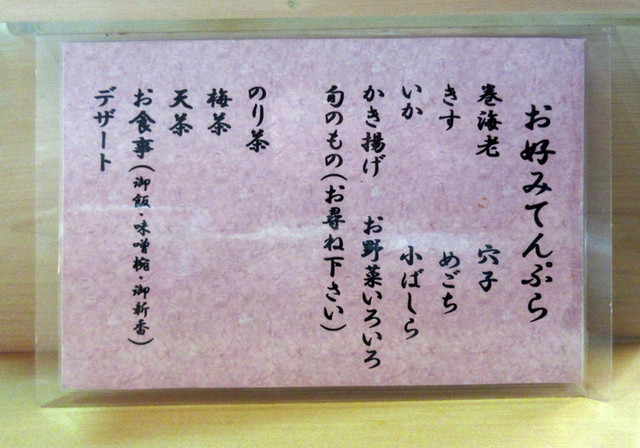 お好みてんぷら
巻海老 穴子
きす めごち
いか 小ばしら
かき揚げ お野菜いろいろ
旬のもの(お尋ね下さい)
のり茶
梅茶
天茶
お食事(御飯・味噌椀・御新香)
デザート